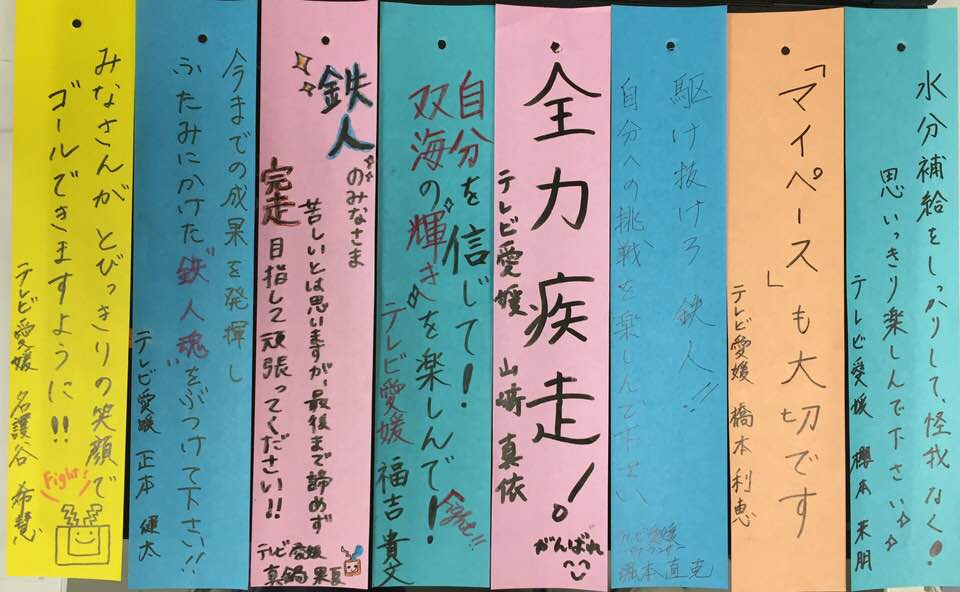 水分補給をしっかりして、怪我なく!
思いっきり楽しんで下さい
テレビ愛媛 櫻本 来朋
「マイペース」も大切です
テレビ愛媛 橋本 利恵
駆け抜けろ 鉄人!!
自分への挑戦を楽しんで下さい
テレビ愛媛
堀本直克
全力疾走!
テレビ愛媛 山﨑 真依
がんばれ
自分を信じて!
双海の輝きを楽しんで!
テレビ愛媛 福吉 貴文
鉄人のみなさま
苦しいとは思いますが、最後まで諦めず
完走目指して頑張ってください!!
テレビ愛媛
真鍋 果夏
今までの成果を発揮し
ふたみにかけた"鉄人魂"をぶつけて下さい!!
テレビ愛媛 正本
みなさんが とびっきりの笑顔で
ゴールできますように!!
テレビ愛媛 名護谷 希慧
Fight!